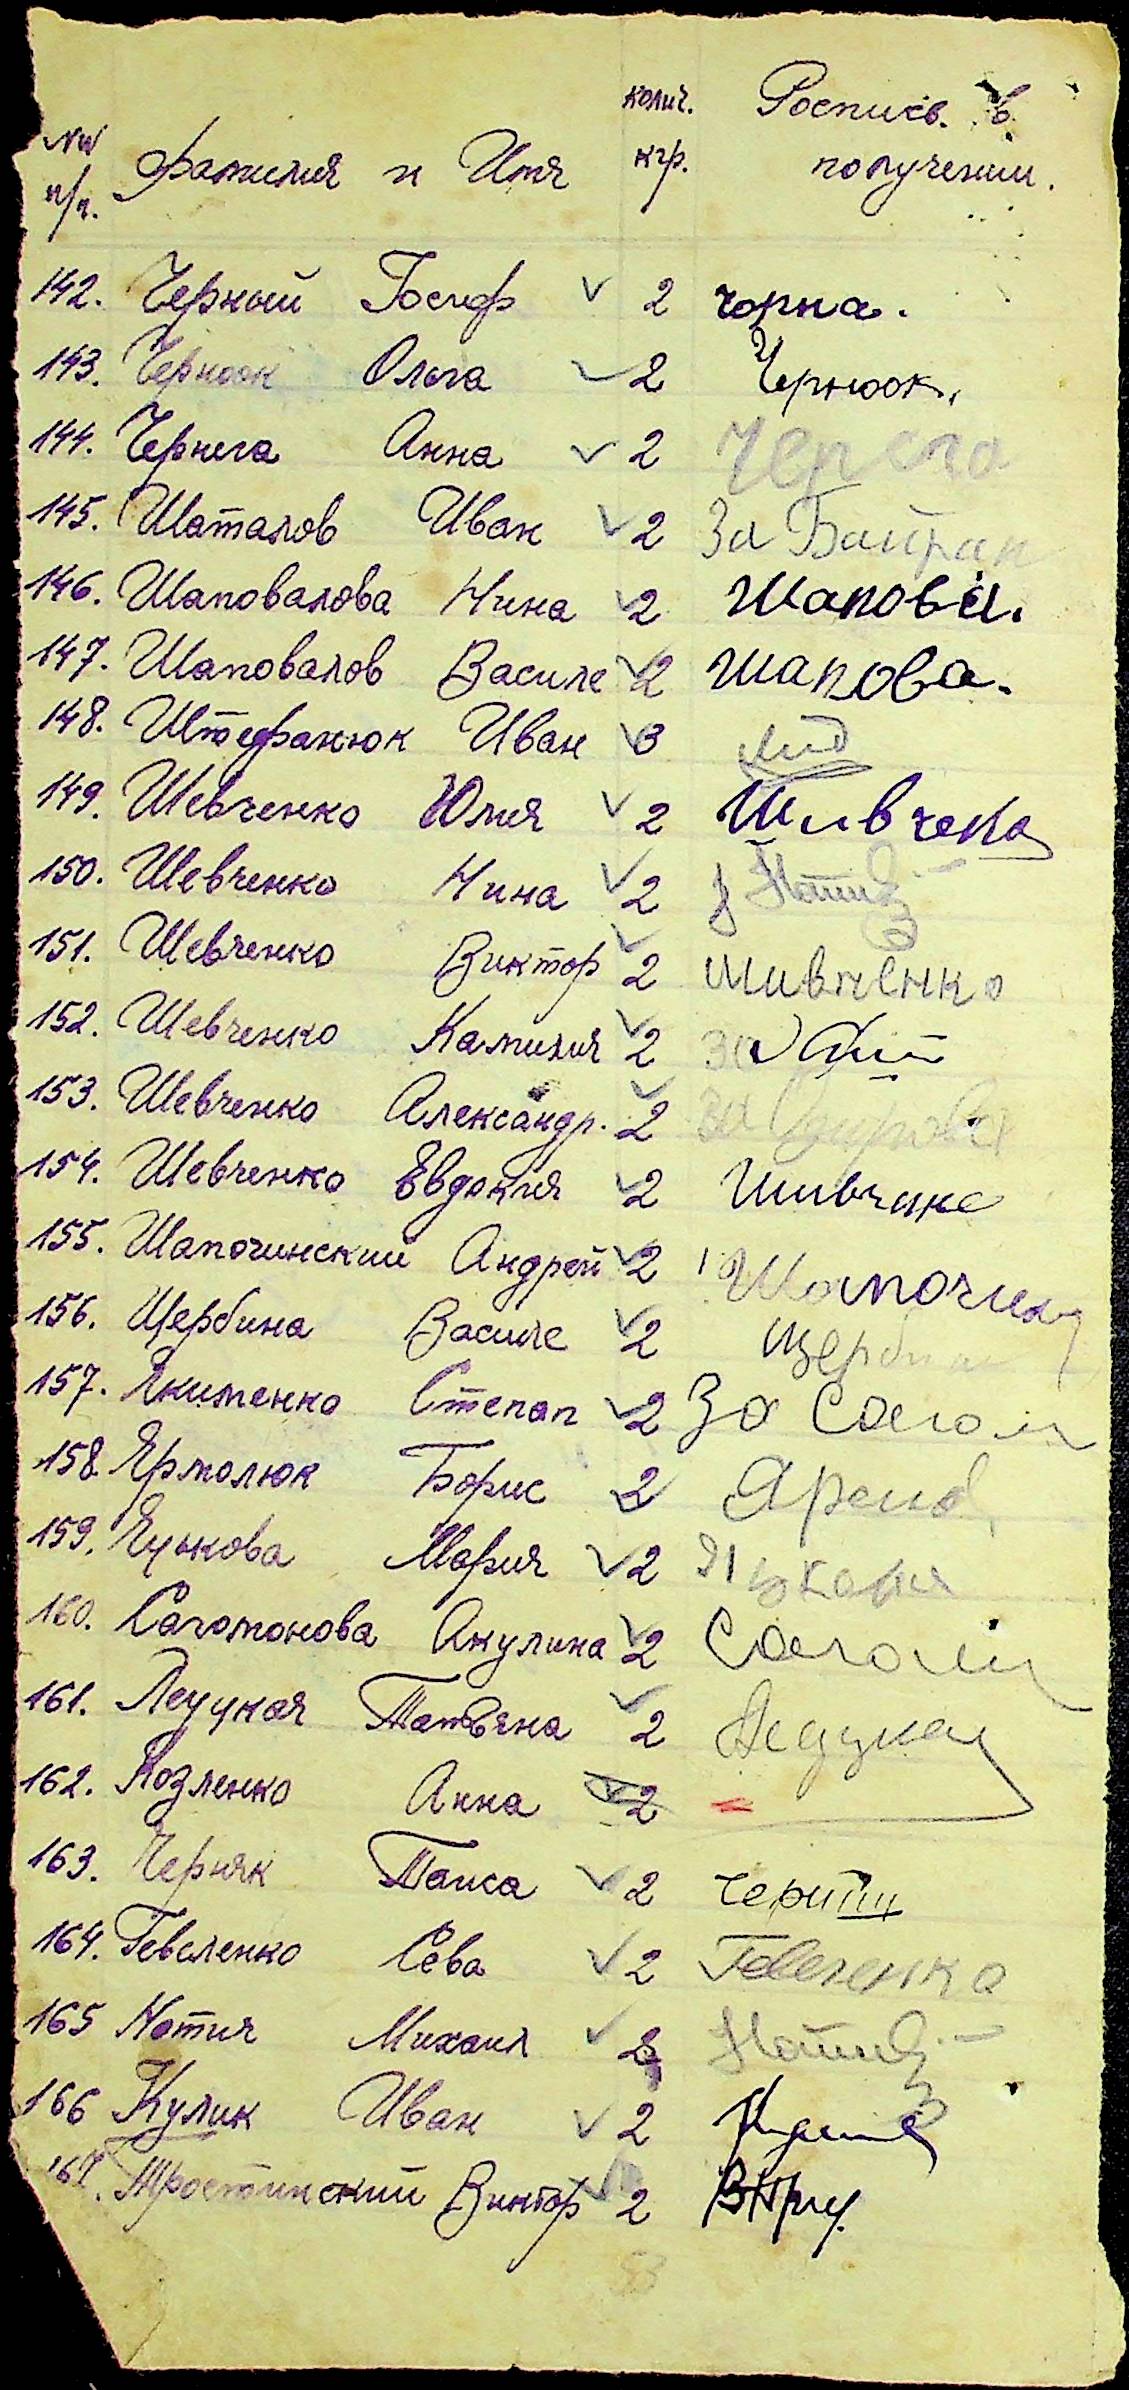 №№ п/п. Фамилия и Имя колич. кгр. Роспись. в получении.
142. Черный Иосиф ✓ 2 чорна.
143. Чернюок Ольга ✓ 2 Чернюок.
144. Чернега Анна ✓ 2
145. Шаталов Иван ✓ 2 За Байрак
146. Шаповалова Нина ✓ 2 Шапова.
147. Шаповалов Василе ✓ 2 шапова.
148. Штефанюк Иван ✓ 3
149. Шевченко Юлия ✓ 2 Шивченко
150. Шевченко Нина ✓ 2
151. Шевченко Виктор ✓ 2 шивченко
152. Шевченко Камилия ✓ 2 за
153. Шевченко Александр. ✓ 2 за
154. Шевченко Евдокия ✓ 2 Шивчинко
155. Шапочинский Андрей ✓ 2 Шапочин
156. Щербина Василе ✓ 2 Щербина
157. Якименко Степан ✓ 2 За Согом
158. Ярмолюк Борис ✓ 2
159. Яцькова Мария ✓ 2
160. Согомонова Акулина ✓ 2 Согом
161. Ледуцкая Татьяна ✓ 2
162. Козленко Анна ✓ 2
163. Черняк Таиса ✓ 2
164. Гевеленко Сева ✓ 2 Гевеленко
165 Нотич Михаил ✓ 2
166 Кулик Иван ✓ 2
167. Тростинский Виктор ✓ 2